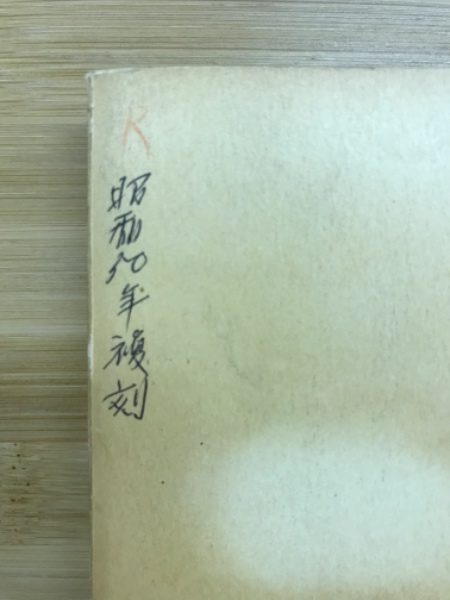 R
昭和50年複刻